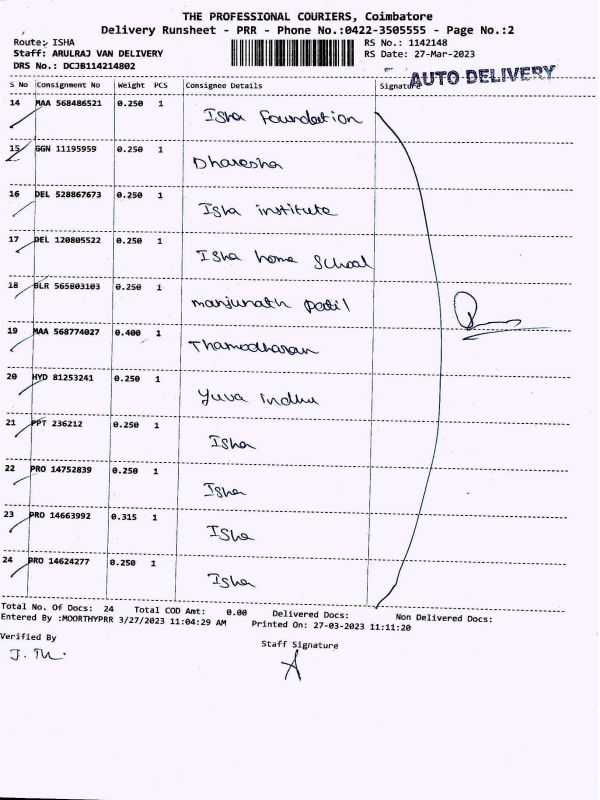 THE PROFESSIONAL COURIERS, Coimbatore
Delivery Runsheet - PRR - Phone No.:0422-3505555 - Page No.:2
Route: ISHA
RS No.: 1142148
Staff: ARULRAJ VAN DELIVERY
RS Date: 27-Mar-2023
DRS No.: DCJB114214802
AUTO DELIVERY
S No Consignment No Weight PCS Consignee Details Signature
14 MAA 568486521 0.250 1 Isha Foundation
15 GGN 11195959 0.250 1 Dharesha
16 DEL 528867673 0.250 1 Isha institute
17 DEL 120805522 0.250 1 Isha home School
18 BLR 565803103 0.250 1 manjunath patil
19 MAA 568774027 0.400 1 Thamodharan
20 HYD 81253241 0.250 1 Yuva indhu
21 PPT 236212 0.250 1 Isha
22 PRO 14752839 0.250 1 Isha
23 PRO 14663992 0.315 1 Isha
24 PRO 14624277 0.250 1 Isha
Total No. Of Docs: 24 Total COD Amt: 0.00 Delivered Docs: Non Delivered Docs:
Entered By :MOORTHYPRR 3/27/2023 11:04:29 AM Printed On: 27-03-2023 11:11:20
Verified By
Staff Signature